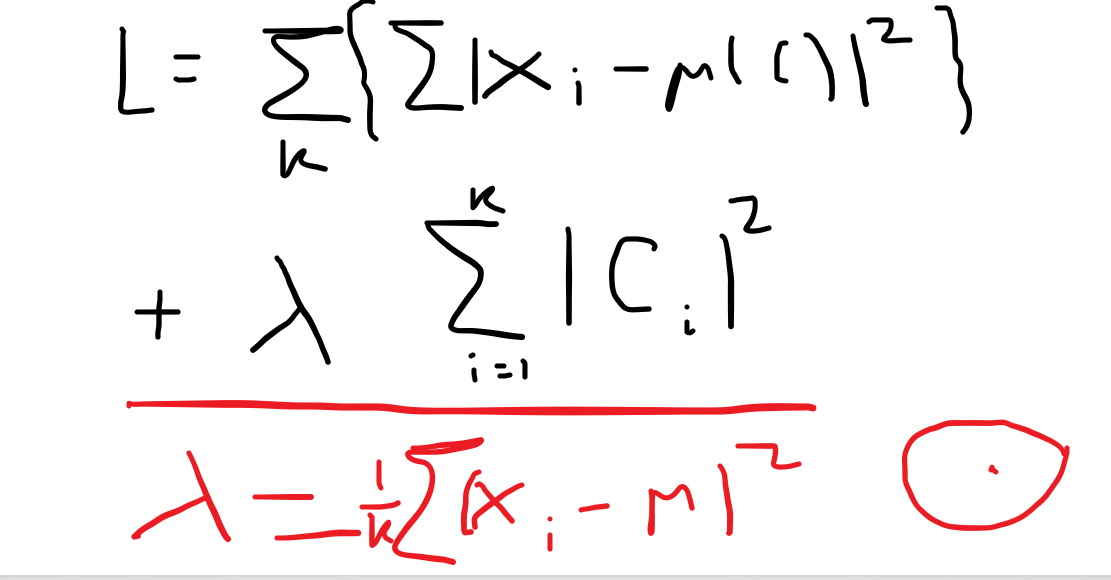 L = ∑_k { ∑ |x_i - μ(C)|^2 }
+ λ ∑_{i=1}^{k} |C_i|^2
λ = 1/k ∑ |x_i - μ|^2